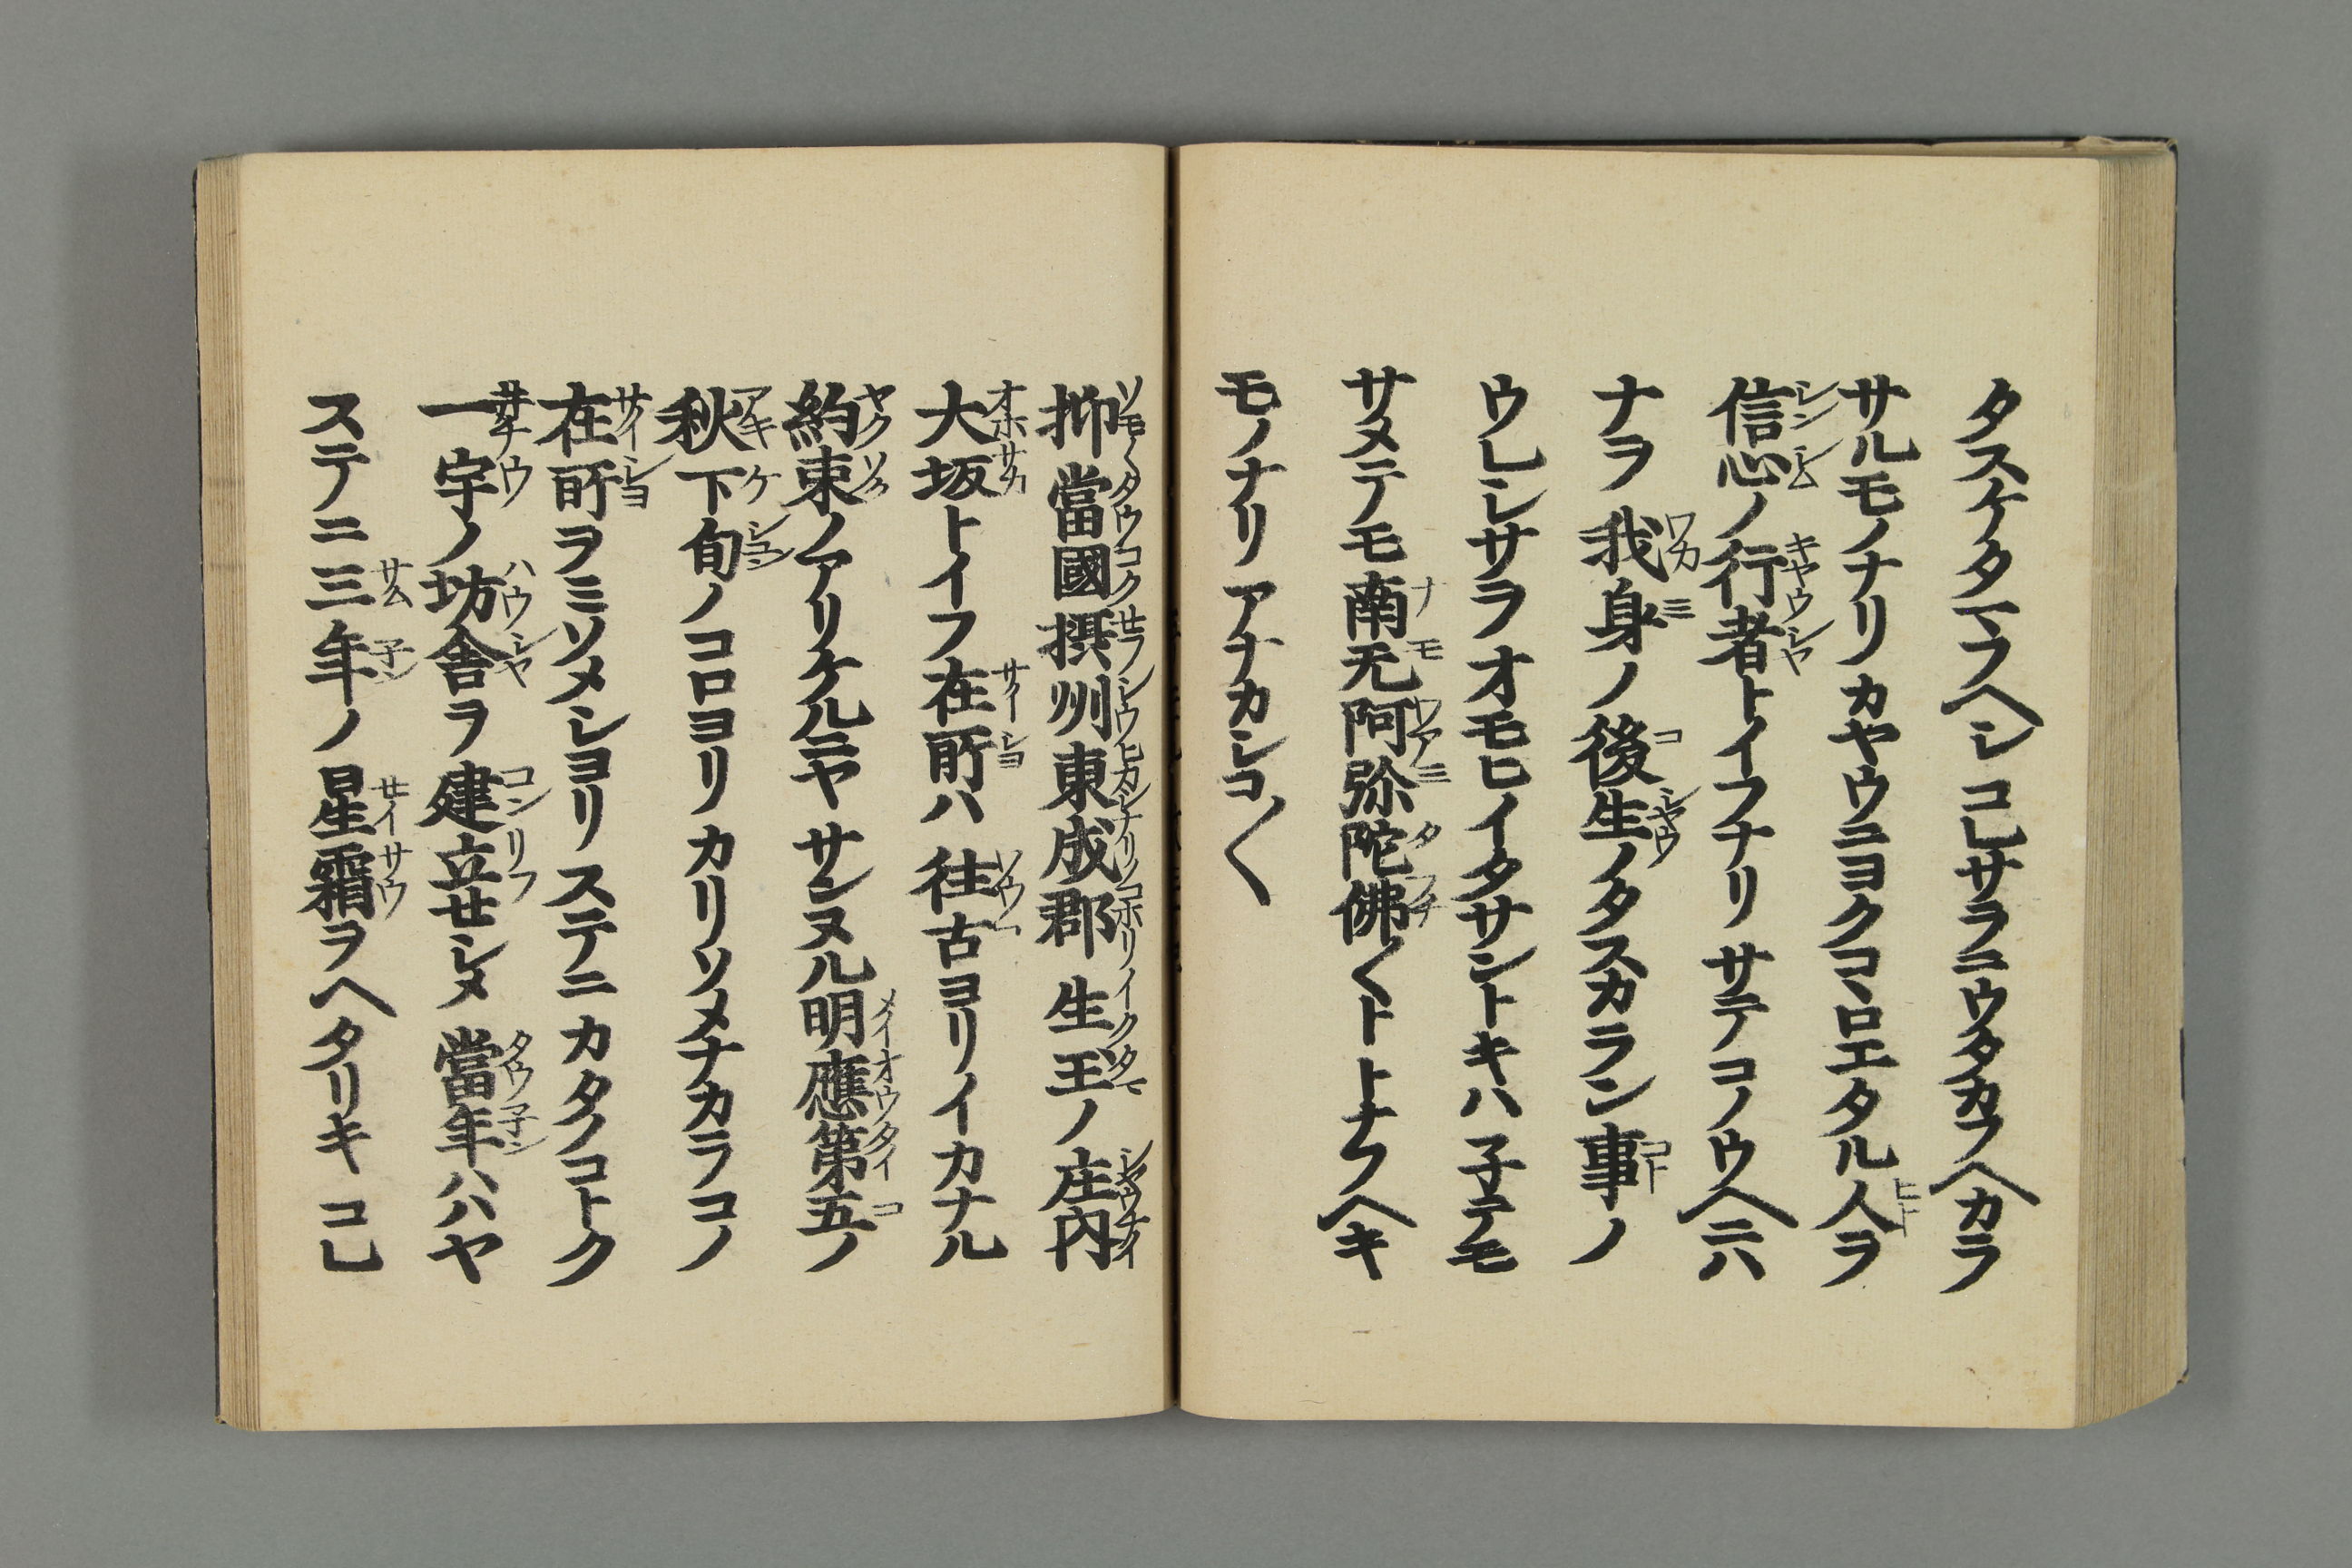 タスケタマフヘシコレサラニウタカフヘカラ
サルモノナリカヤウニヨクコヽロエタル人ヲ
信心ノ行者トイフナリサテコノウヘニハ
ナヲ我身ノ後生ノタスカラン事ノ
ウレシサヲオモヒイタサントキハ子テモ
サメテモ南无阿弥陀佛〱トトナフヘキ
モノナリアナカシコ〱
抑當國摂州東成郡生玉ノ庄内
大坂トイフ在所ハ往古ヨリイカナル
約束ノアリケルニヤサンヌル明應第五ノ
秋下旬ノコロヨリカリソメナカラコノ
在所ヲミソメシヨリステニカタノコトク
一宇ノ坊舎ヲ建立セシメ當年ハハヤ
ステニ三年ノ星霜ヲヘタリキコレ